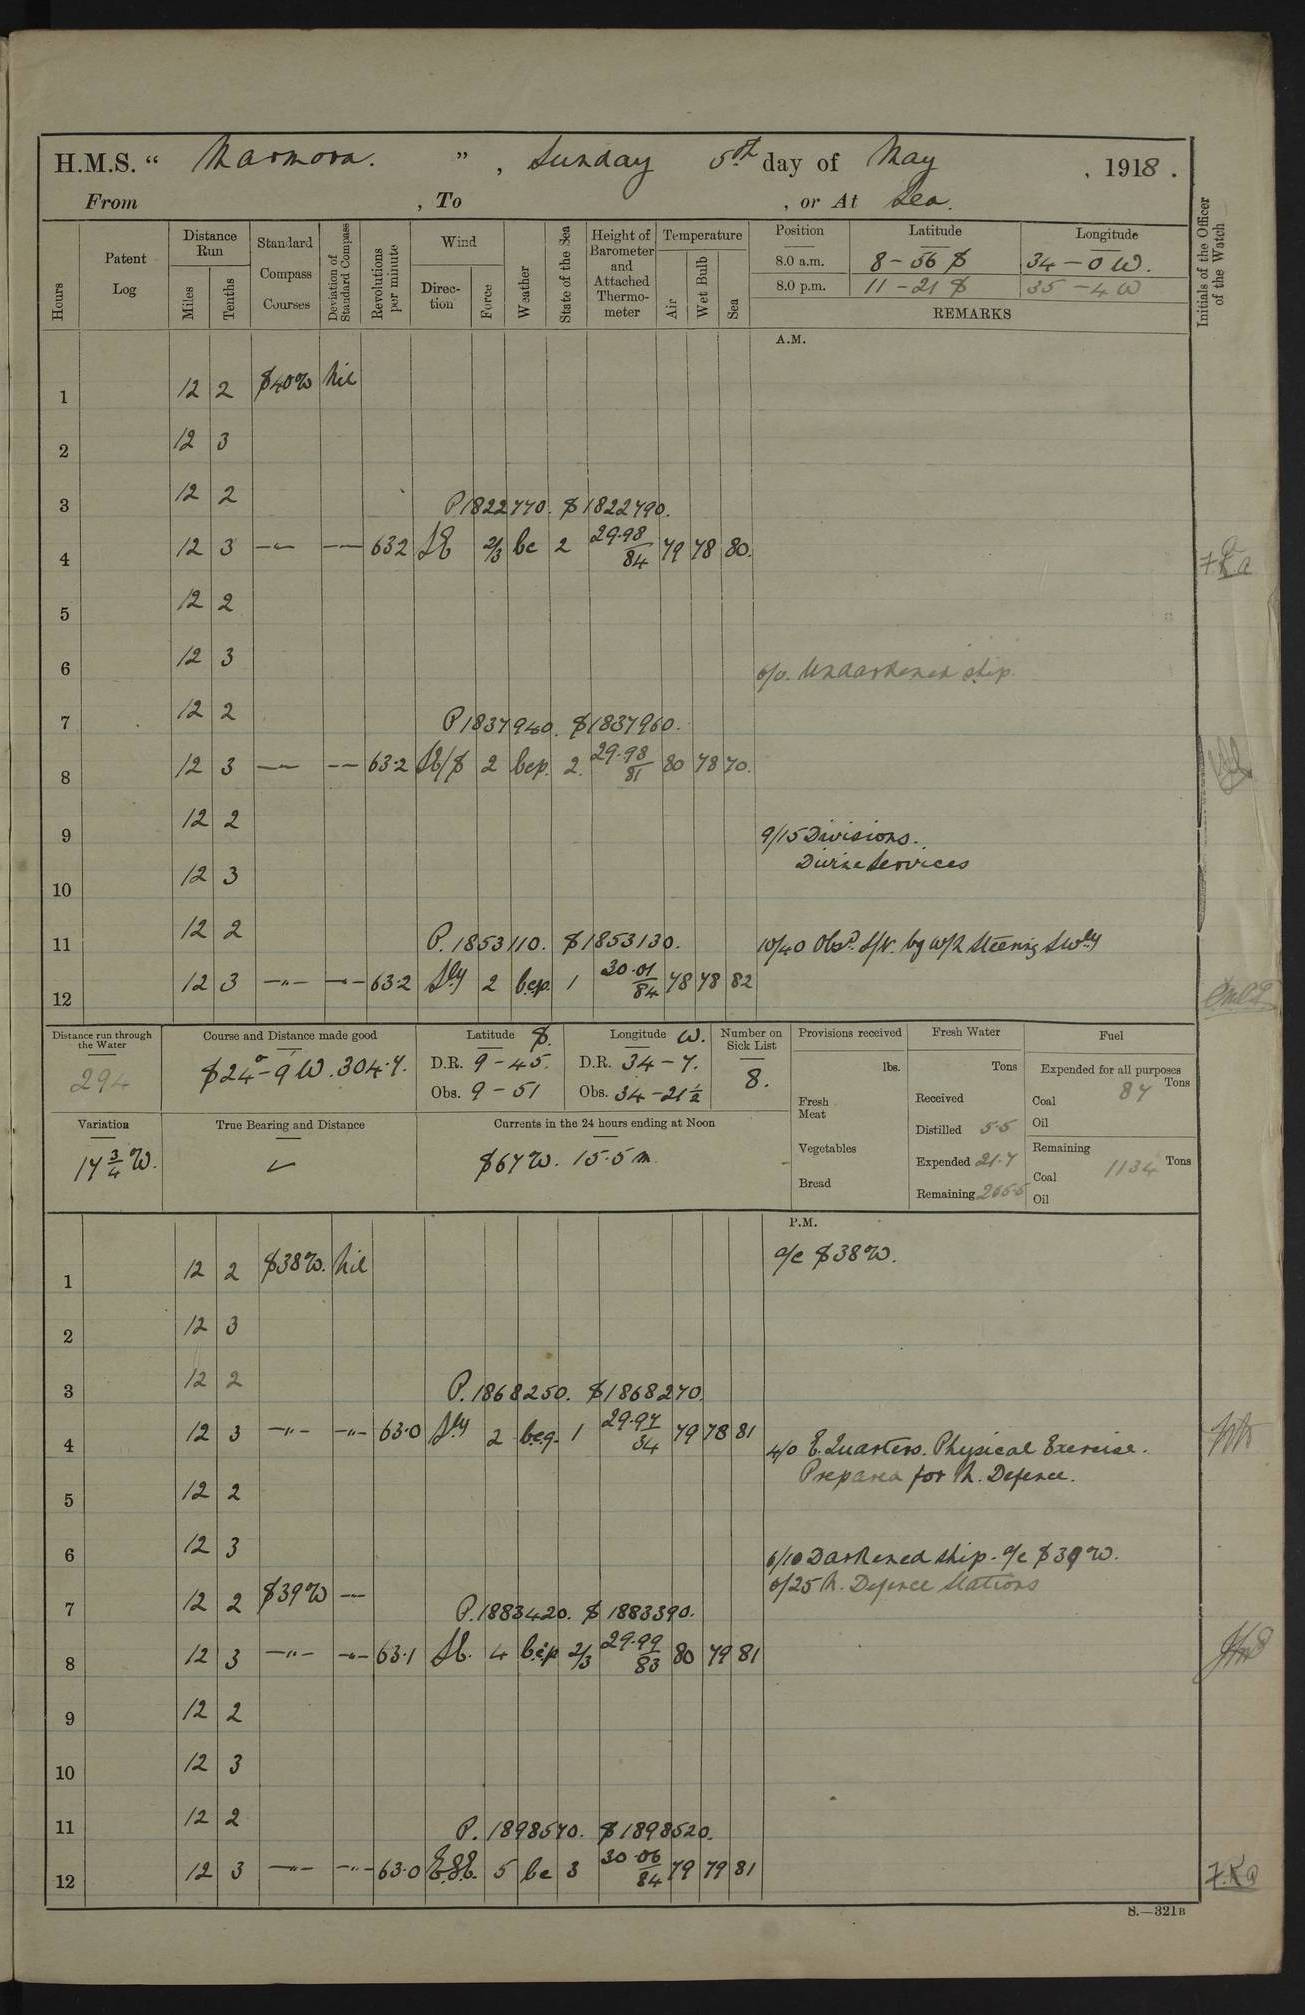 H.M.S. “ Marmora. ” , Sunday 5th day of May , 1918 .
From , To , or At Sea.
Hours
Patent Log
Distance Run
Miles
Tenths
Standard Compass Courses
Deviation of Standard Compass
Revolutions per minute
Wind
Direction
Force
Weather
State of the Sea
Height of Barometer and Attached Thermometer
Temperature
Air
Wet Bulb
Sea
Position Latitude Longitude
8.0 a.m. 8-56 S 34-0 W.
8.0 p.m. 11-21 S 35-4 W
REMARKS
Initials of the Officer of the Watch
A.M.
1 12 2 S40W Nil
2 12 3
3 12 2 P1822770. S1822790.
4 12 3 —"— —"— 632 SE 2/3 bc 2 29.98/84 79 78 80.
5 12 2
6 12 3 6/0. Undarkened ship.
7 12 2 P1837940. S1837960.
8 12 3 —"— —"— 63.2 SE/S 2 bcp. 2. 29.98/81 80 78 70.
9 12 2 9/15 Divisions.
Divine Services
10 12 3
11 12 2 P.1853110. S1853130. 10/40 Obsd. S/V. by W/L Steering SWly
12 12 3 —"— —"— 63.2 Sly 2 bcp. 1 30.01/84 78 78 82
Distance run through the Water
294
Course and Distance made good
S24°-9' W. 304.7.
Latitude S.
D.R. 9-45.
Obs. 9-51
Longitude W.
D.R. 34-7.
Obs. 34-21½
Number on Sick List
8.
Provisions received
lbs.
Fresh Meat
Vegetables
Bread
Fresh Water
Tons
Received
Distilled 5.5
Expended 21.7
Remaining 265.5
Fuel
Expended for all purposes
Tons
Coal 87
Oil
Remaining
Coal 1134 Tons
Oil
Variation
17¾ W.
True Bearing and Distance
✓
Currents in the 24 hours ending at Noon
S67W. 15.5 m
P.M.
1 12 2 S38W. Nil a/c S38W.
2 12 3
3 12 2 P.1868250. S1868270.
4 12 3 —"— —"— 63.0 Sly 2 bcq. 1 29.97/34 79 78 81
4/0 E. Quarters. Physical Exercise.
Prepared for N. Defence.
5 12 2
6 12 3 6/10 Darkened ship. a/c S39W.
6/25 N. Defence Stations
7 12 2 S39W —"— P.1883420. S1883390.
8 12 3 —"— —"— 63.1 SE. 4 bcp 2/3 29.99/83 80 79 81
9 12 2
10 12 3
11 12 2 P. 1898570. S1898520.
12 12 3 —"— —"— 63.0 E.S.E. 5 bc 3 30.06/84 79 79 81
S.—321B